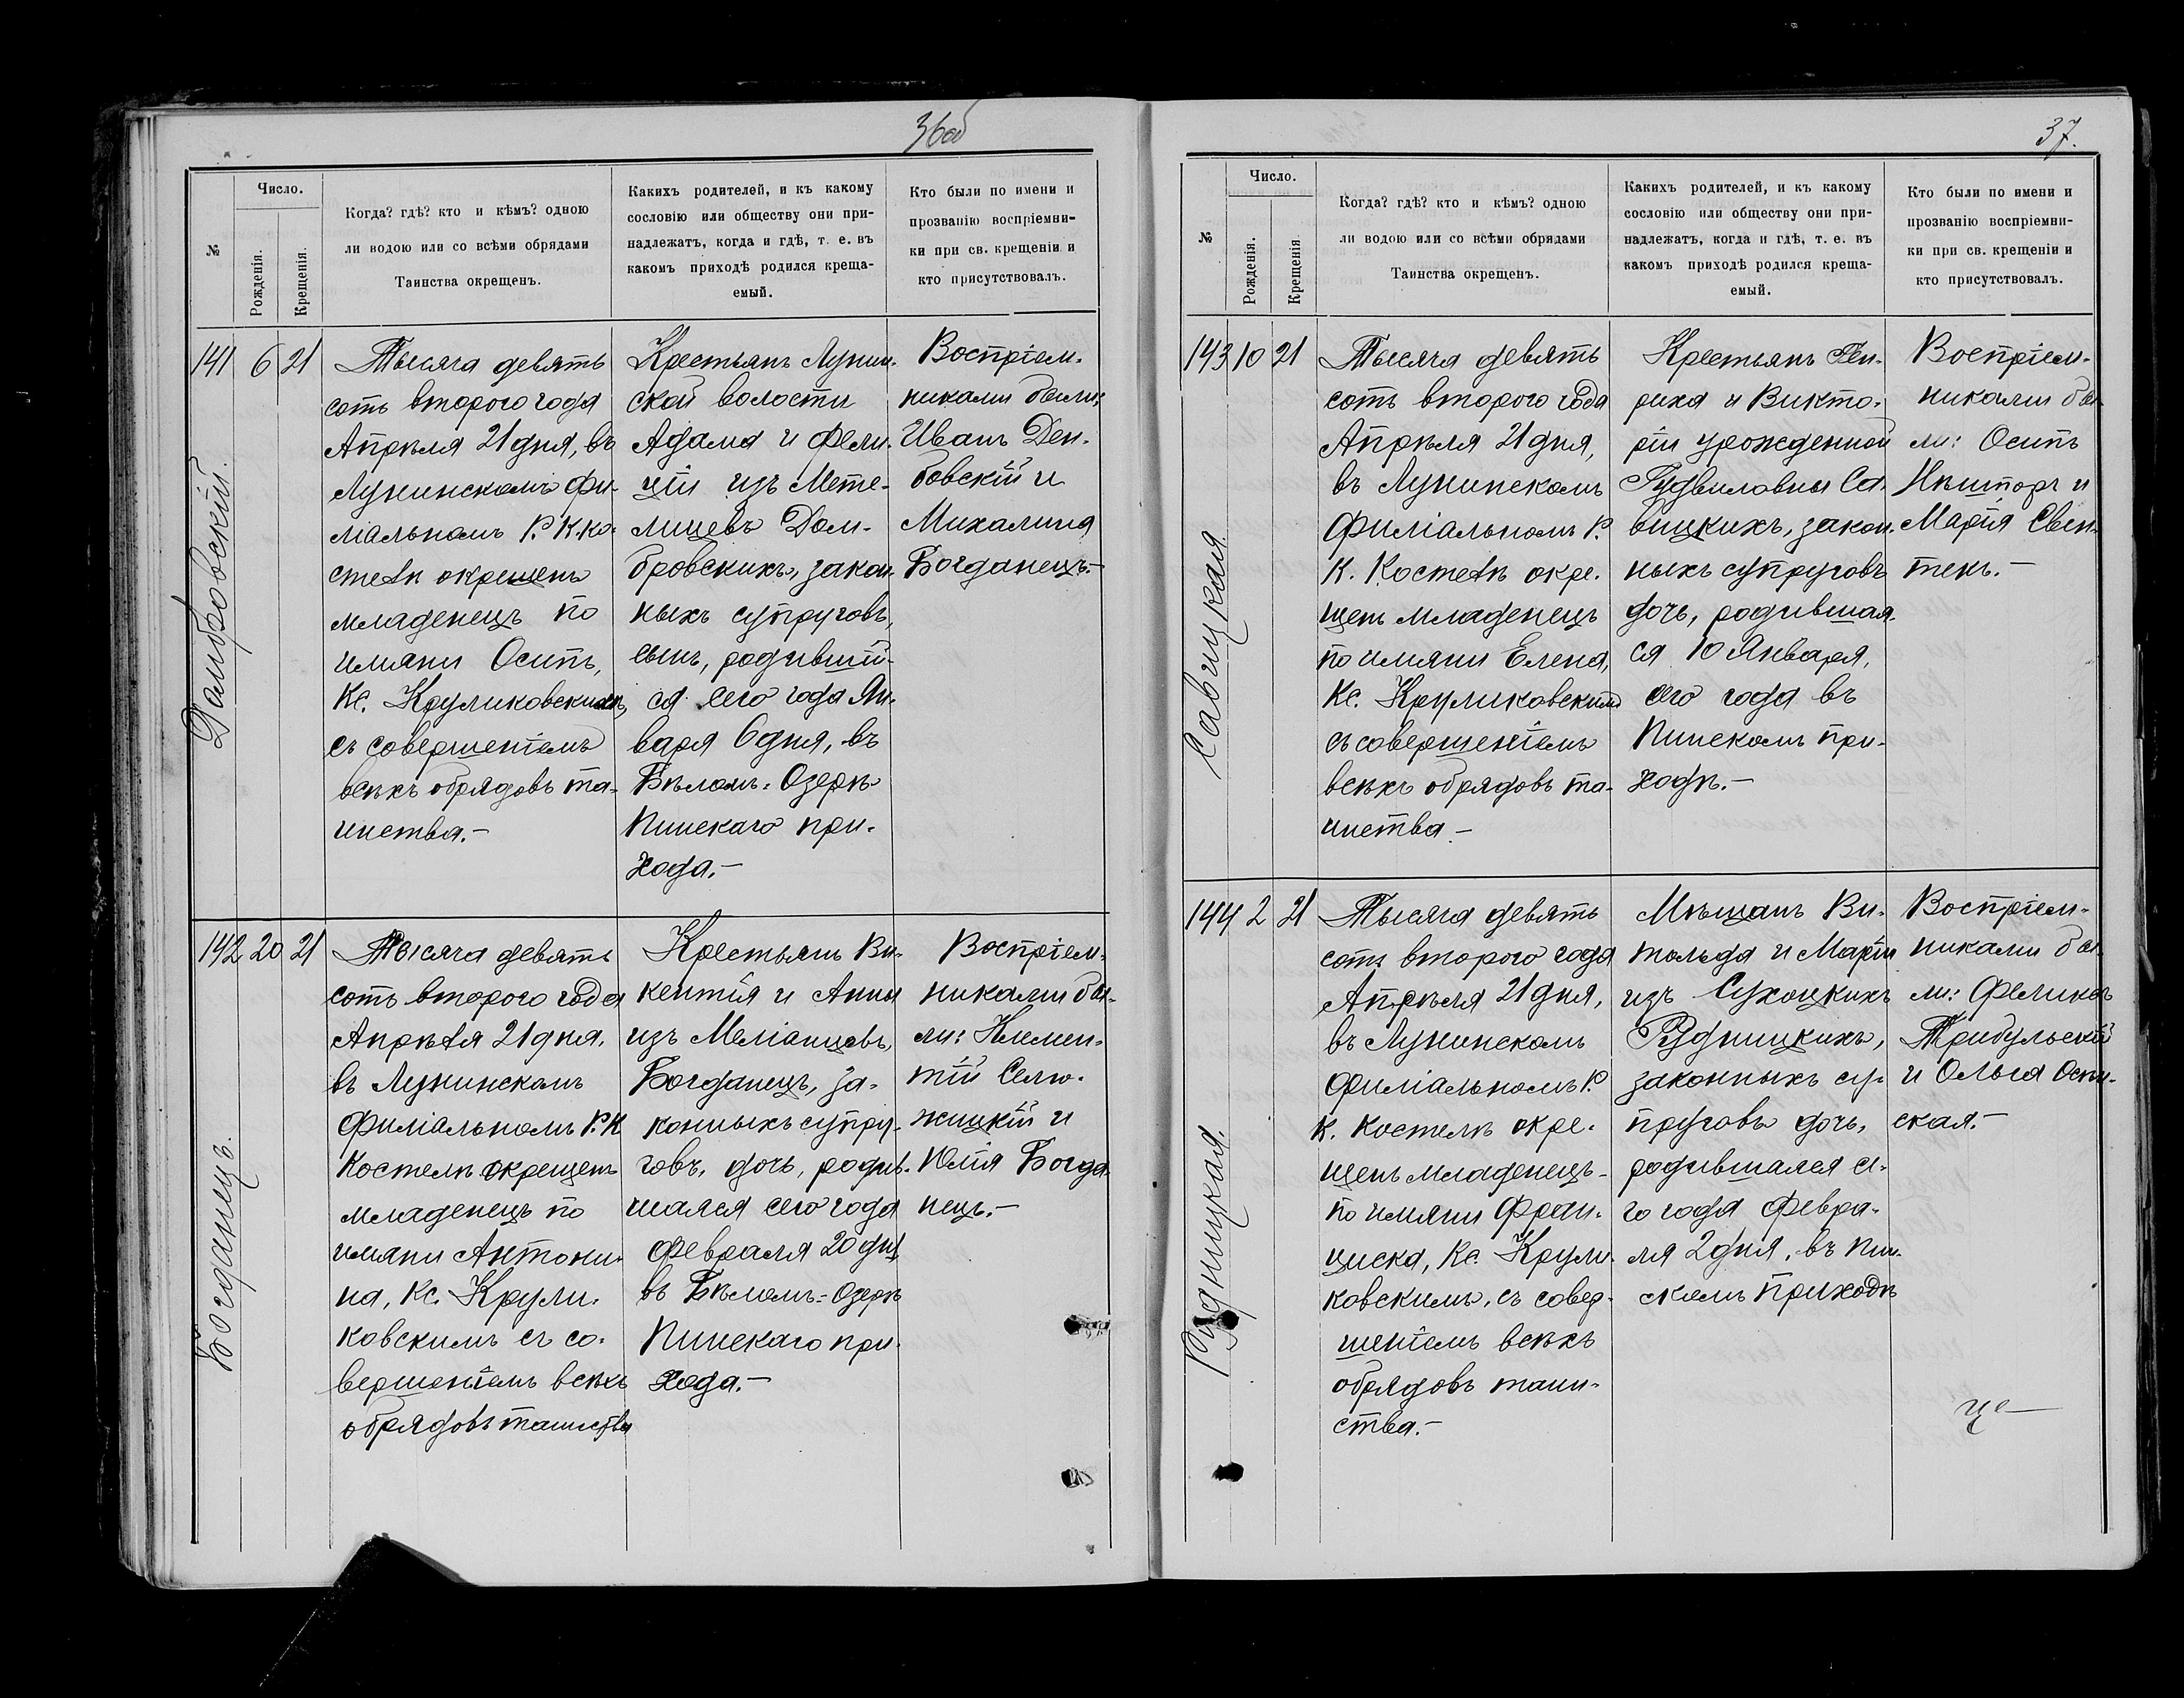 36об
№
Число.
Рожденія.
Крещенія.
Когда? гдѣ? кто и кѣмъ? одною
ли водою или со всѣми обрядами
Таинства окрещенъ.
Какихъ родителей, и къ какому
сословію или обществу они при-
надлежатъ, когда и гдѣ, т. е. въ
какомъ приходѣ родился креща-
емый.
Кто были по имени и
прозванію воспріемни-
ки при св. крещеніи и
кто присутствовалъ.
141 6 21
Домбровскій.
Тысяча девять
сотъ второго года
Апрѣля 21 дня, въ
Лунинскомъ фи-
ліальномъ Р. К. ко-
стелѣ окрещенъ
младенецъ по
имяни Осипъ,
Кс. Круликовскимъ,
съ совершеніемъ
всѣхъ обрядовъ та-
инства.—
Крестьянъ Лунин-
ской волости
Адама и Фели-
ціи изъ Мете-
лицевъ Дом-
бровскихъ, закон-
ныхъ супруговъ,
сынъ, родившій-
ся сего года Ян-
варя 6 дня, въ
Бѣломъ-Озерѣ
Пинскаго при-
хода.—
Воспріем-
никами были:
Иванъ Дем-
бовскій и
Михалина
Богданецъ.—
142 20 21
Богданецъ.
Тысяча девять
сотъ второго года
Апрѣля 21 дня,
въ Лунинскомъ
филіальномъ Р. К
костелѣ окрещенъ
младенецъ по
имяни Антони-
на, Кс. Крули-
ковскимъ съ со-
вершеніемъ всѣхъ
обрядовъ таинства
Крестьянъ Ви-
кентія и Анны
изъ
Богданецъ, за-
конныхъ супру-
говъ, дочь, родив-
шаяся сего года
Февраля 20 дня
въ Бѣломъ-Озерѣ
Пинскаго при-
хода.—
Воспріем-
никами бы-
ли: Клемен-
тій Селю-
жицкій и
Юлія Богда-
нецъ.—
37.
№
Число.
Рожденія.
Крещенія.
Когда? гдѣ? кто и кѣмъ? одною
ли водою или со всѣми обрядами
Таинства окрещенъ.
Какихъ родителей, и къ какому
сословію или обществу они при-
надлежатъ, когда и гдѣ, т. е. въ
какомъ приходѣ родился креща-
емый.
Кто были по имени и
прозванію воспріемни-
ки при св. крещеніи и
кто присутствовалъ.
143 10 21
Савицкая.
Тысяча девять
сотъ второго года
Апрѣля 21 дня,
въ Лунинскомъ
филіальномъ Р.
К. Костелѣ окре-
щенъ младенецъ
по имяни Елена,
Кс. Круликовскимъ
съ совершеніемъ
всѣхъ обрядовъ та-
инства —
Крестьянъ Ген-
риха и Викто-
ріи урожденной
Гудвиловны Са-
вицкихъ, закон-
ныхъ супруговъ
дочь, родившая-
ся 10 Января,
сего года въ
Пинскомъ при-
ходѣ.—
Воспріем-
никами бы-
ли: Осипъ
и
Марія Свен-
текъ.—
144 2 21
Рудницкая.
Тысяча девять
сотъ второго года
Апрѣля 21 дня,
въ Лунинскомъ
филіальномъ Р.
К. Костелѣ окре-
щенъ младенецъ
по имяни Фран-
циска, Кс. Крули-
ковскимъ, съ совер-
шеніемъ всѣхъ
обрядовъ таин-
ства.—
Мѣщанъ Ви-
тольда и Маріи
изъ Сухоцкихъ
Рудницкихъ,
законныхъ су-
пруговъ дочь,
родившаяся се-
го года Февра-
ля 2 дня, въ Пин-
скомъ приходѣ
Воспріем-
никами бы-
ли: Феликсъ
Трибульскій
и Ольга Осин-
ская.—